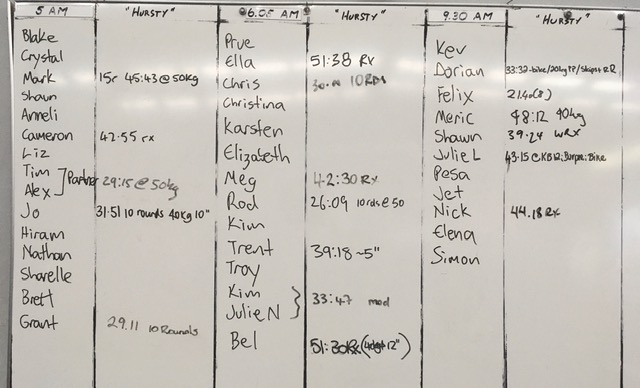 5 AM "HURSTY"
Blake
Crystal
Mark 15r 45:43 @ 50kg
Shaun
Anneli
Cameron 42:55 rx
Liz
Tim
Alex ] Partner 29:15 @ 50kg
Jo 31:51 10 rounds 40kg 10"
Hiram
Nathan
Sharelle
Brett
Grant 29.11 10 Rounds
6.05 AM "HURSTY"
Prue
Ella 51:38 RX
Chris 10 RDS
Christina
Karsten
Elizabeth
Meg 42:30 Rx
Rod 26:09 10rds @ 50
Kim
Trent 39:18 ~5"
Troy
Kim
Julie N } 33:47 mod
Bel 51:30 Rx 12")
9.30 AM "HURSTY"
Kev
Dorian 33:32 - bike/20kg PP/
Felix 21.40(8)
Meric 48:12 40kg
Shawn 39:24 WRX
Julie L 43:15 @ KB12; Burpee; Bike
Pesa
Jet
Nick 44.18 Rx
Elena
Simon